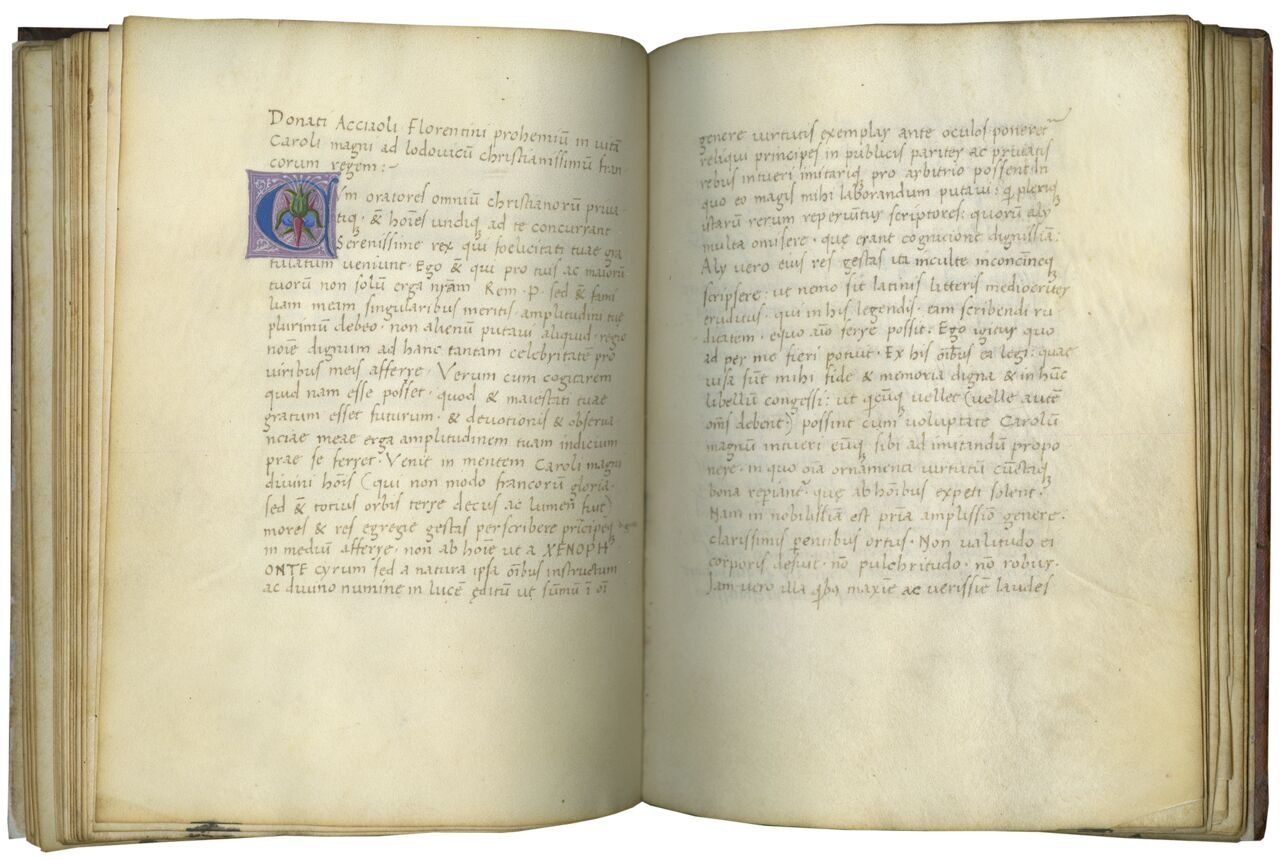 Donati Acciaoli Florentini prohemiū in uitā
Caroli magni ad lodouicū christianissimū fran
corum regem:~
Cvm oratores omniū christianorū priua
tiq; & hoīes undiq; ad te concurrant
Serenissime rex qui foelicitati tuae gra
tulatum ueniunt· Ego & qui pro tuis ac maiorū
tuorū non solū erga nr̄am Rem·P· sed & fami
liam meam singularibus meritis· amplitudini tuę
plurimū debeo· non alienū putaui aliquid regio
noīe dignum ad hanc tantam celebritatē pro
uiribus meis afferre· Verum cum cogitarem
quid nam esse posset· quod & maiestati tuae
gratum esset futurum· & deuotionis & obserua
nciae meae erga amplitudinem tuam indicium
prae se ferret· Venit in mentem Caroli magni
diuini hoīs (qui non modo francorū gloria·
sed & totius orbis terre decus ac lumen̄ fuit)
mores & res egregie gestas perscribere prīcipēq;
in mediū afferre· non ab hoīe ut a XENOPH
ONTE cyrum sed a natura ipsa oībus instructum
ac diuino numine in lucē ęditū ut sūmū ī oī
genere uirtutis exemplar ante oculos poneret~
reliqui principes in publicis pariter ac priuatis
rebus intueri imitariq; pro arbitrio possent In
quo eo magis mihi laborandum putaui: q̄ pleriq;
istarū rerum reperiūtur scriptores: quorū aly
multa omisere· quę erant cognicione dignissīa:
Aly uero eius res gestas ita inculte inconcīneq;
scripsere: ut nemo sit latinis litteris mediocriter
eruditus· qui in his legendis· eam scribendi ru
dicatem· equo aīo ferre possit: Ego igitur quo
ad per me fieri potuit· Ex his oībus ea legi: quae
uisa sūt mihi fide & memoria digna & in hūc
libellū congessi: ut qcūq; uellet (uelle autē
om̄s debent) possint cum uoluptate Carolū
magnū intueri eūq; sibi ad imitandū propo
nere· in quo oīa ornāmenta uirtutū cūctaq;
bona repiant̄· quę ab hōībus expeti solent·
Nam in nobilissīa est prīa amplissīo genere·
clarissimis parentibus ortus· Non ualitudo ei
corporis defuit· nō pulchritudo· nō robur·
Iam uero illa qbq maxīe ac uerissīe laudes